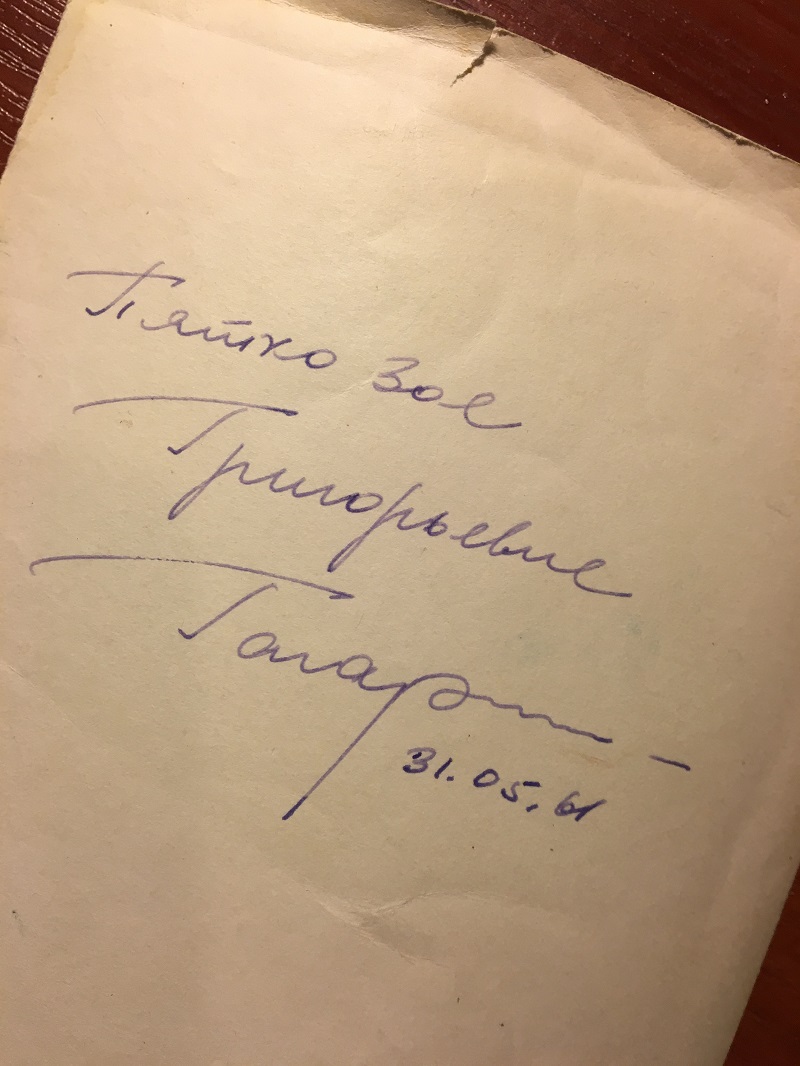 Пятко Зое
Григорьевне
Гагарин
31.05.61